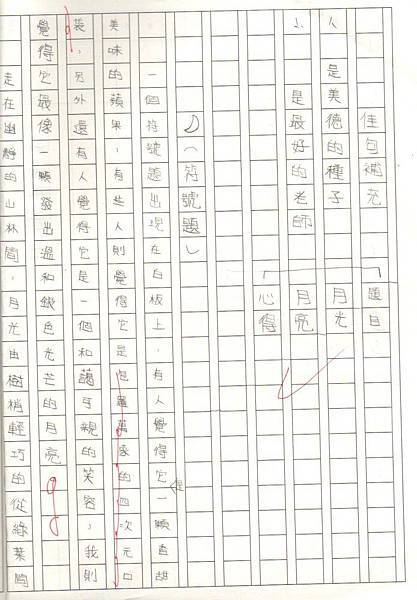 佳句補充
是美德的種子
是最好的老師
題目
月光
月亮
心得
(符號題)
一個符號題出現在白板上，有人覺得它是一顆香甜
美味的蘋果，有些人則覺得它是包羅萬象的四次元口
袋，另外還有人覺得它是一個和藹可親的笑容，我則
覺得它最像一顆發出溫和銀色光芒的月亮。
走在幽靜的山林間，月光由樹梢輕巧的從綠葉間